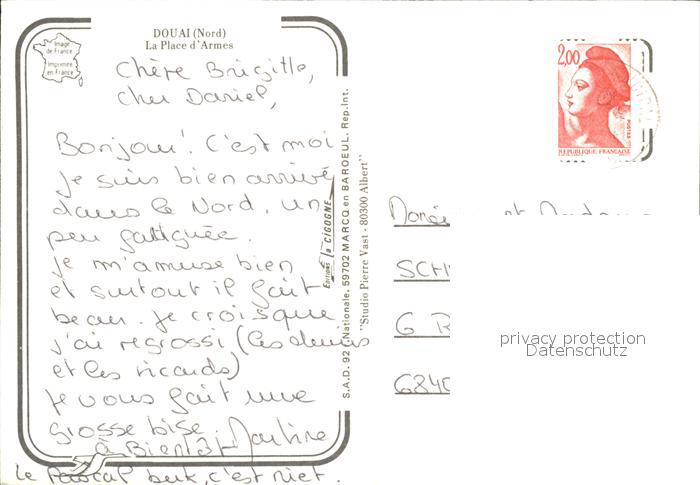 DOUAI (Nord)
La Place d'Armes
Image
de France
Imprimée
en France
Chère Brigitte,
cher Daniel,
Bonjour! C'est moi
je suis bien arrivée
dans le Nord. un
peu fatiguée.
je m'amuse bien
et surtout il fait
beau. je crois que
j'ai regrossi (les
et les ricards)
je vous fait une
grosse bise.
à Bientôt Martine
le Pascal c'est niet.
Editions La CIGOGNE
S.A.D. 92 r. Nationale, 59702 MARCQ en BAROEUL. Rep. Int.
"Studio Pierre Vast - 80300 Albert"
2,00
POSTES
REPUBLIQUE FRANÇAISE
SCH
6 R
6840
privacy protection
Datenschutz